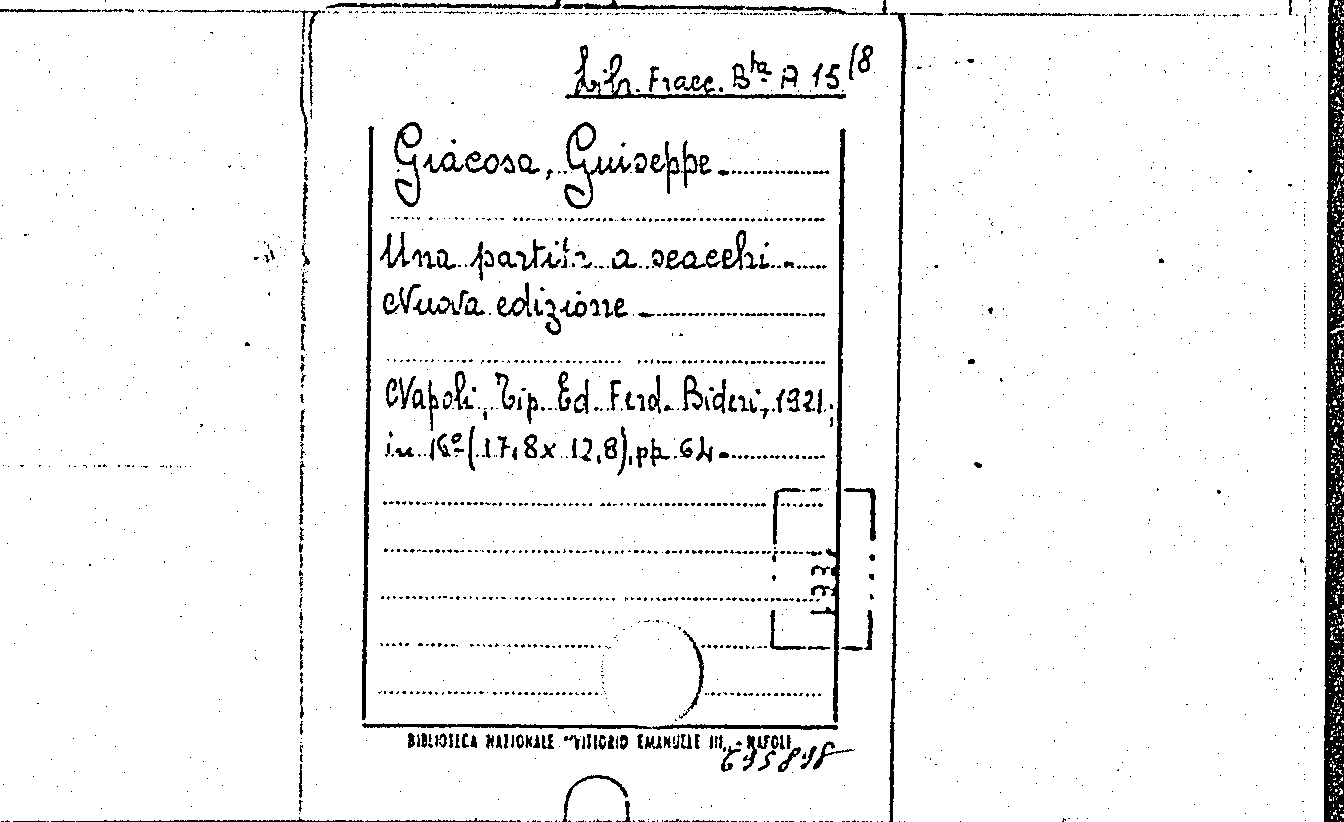 Lib. Fracc. B.ta A 15/8
Giacosa, Guiseppe.
Una partita a scacchi.
Nuova edizione.
Napoli, Tip. Ed. Ferd. Bideri, 1921;
in 16º (17,8 x 12,8), pp. 64.
BIBLIOTECA NAZIONALE "VITTORIO EMANUELE III" - NAPOLI
695898